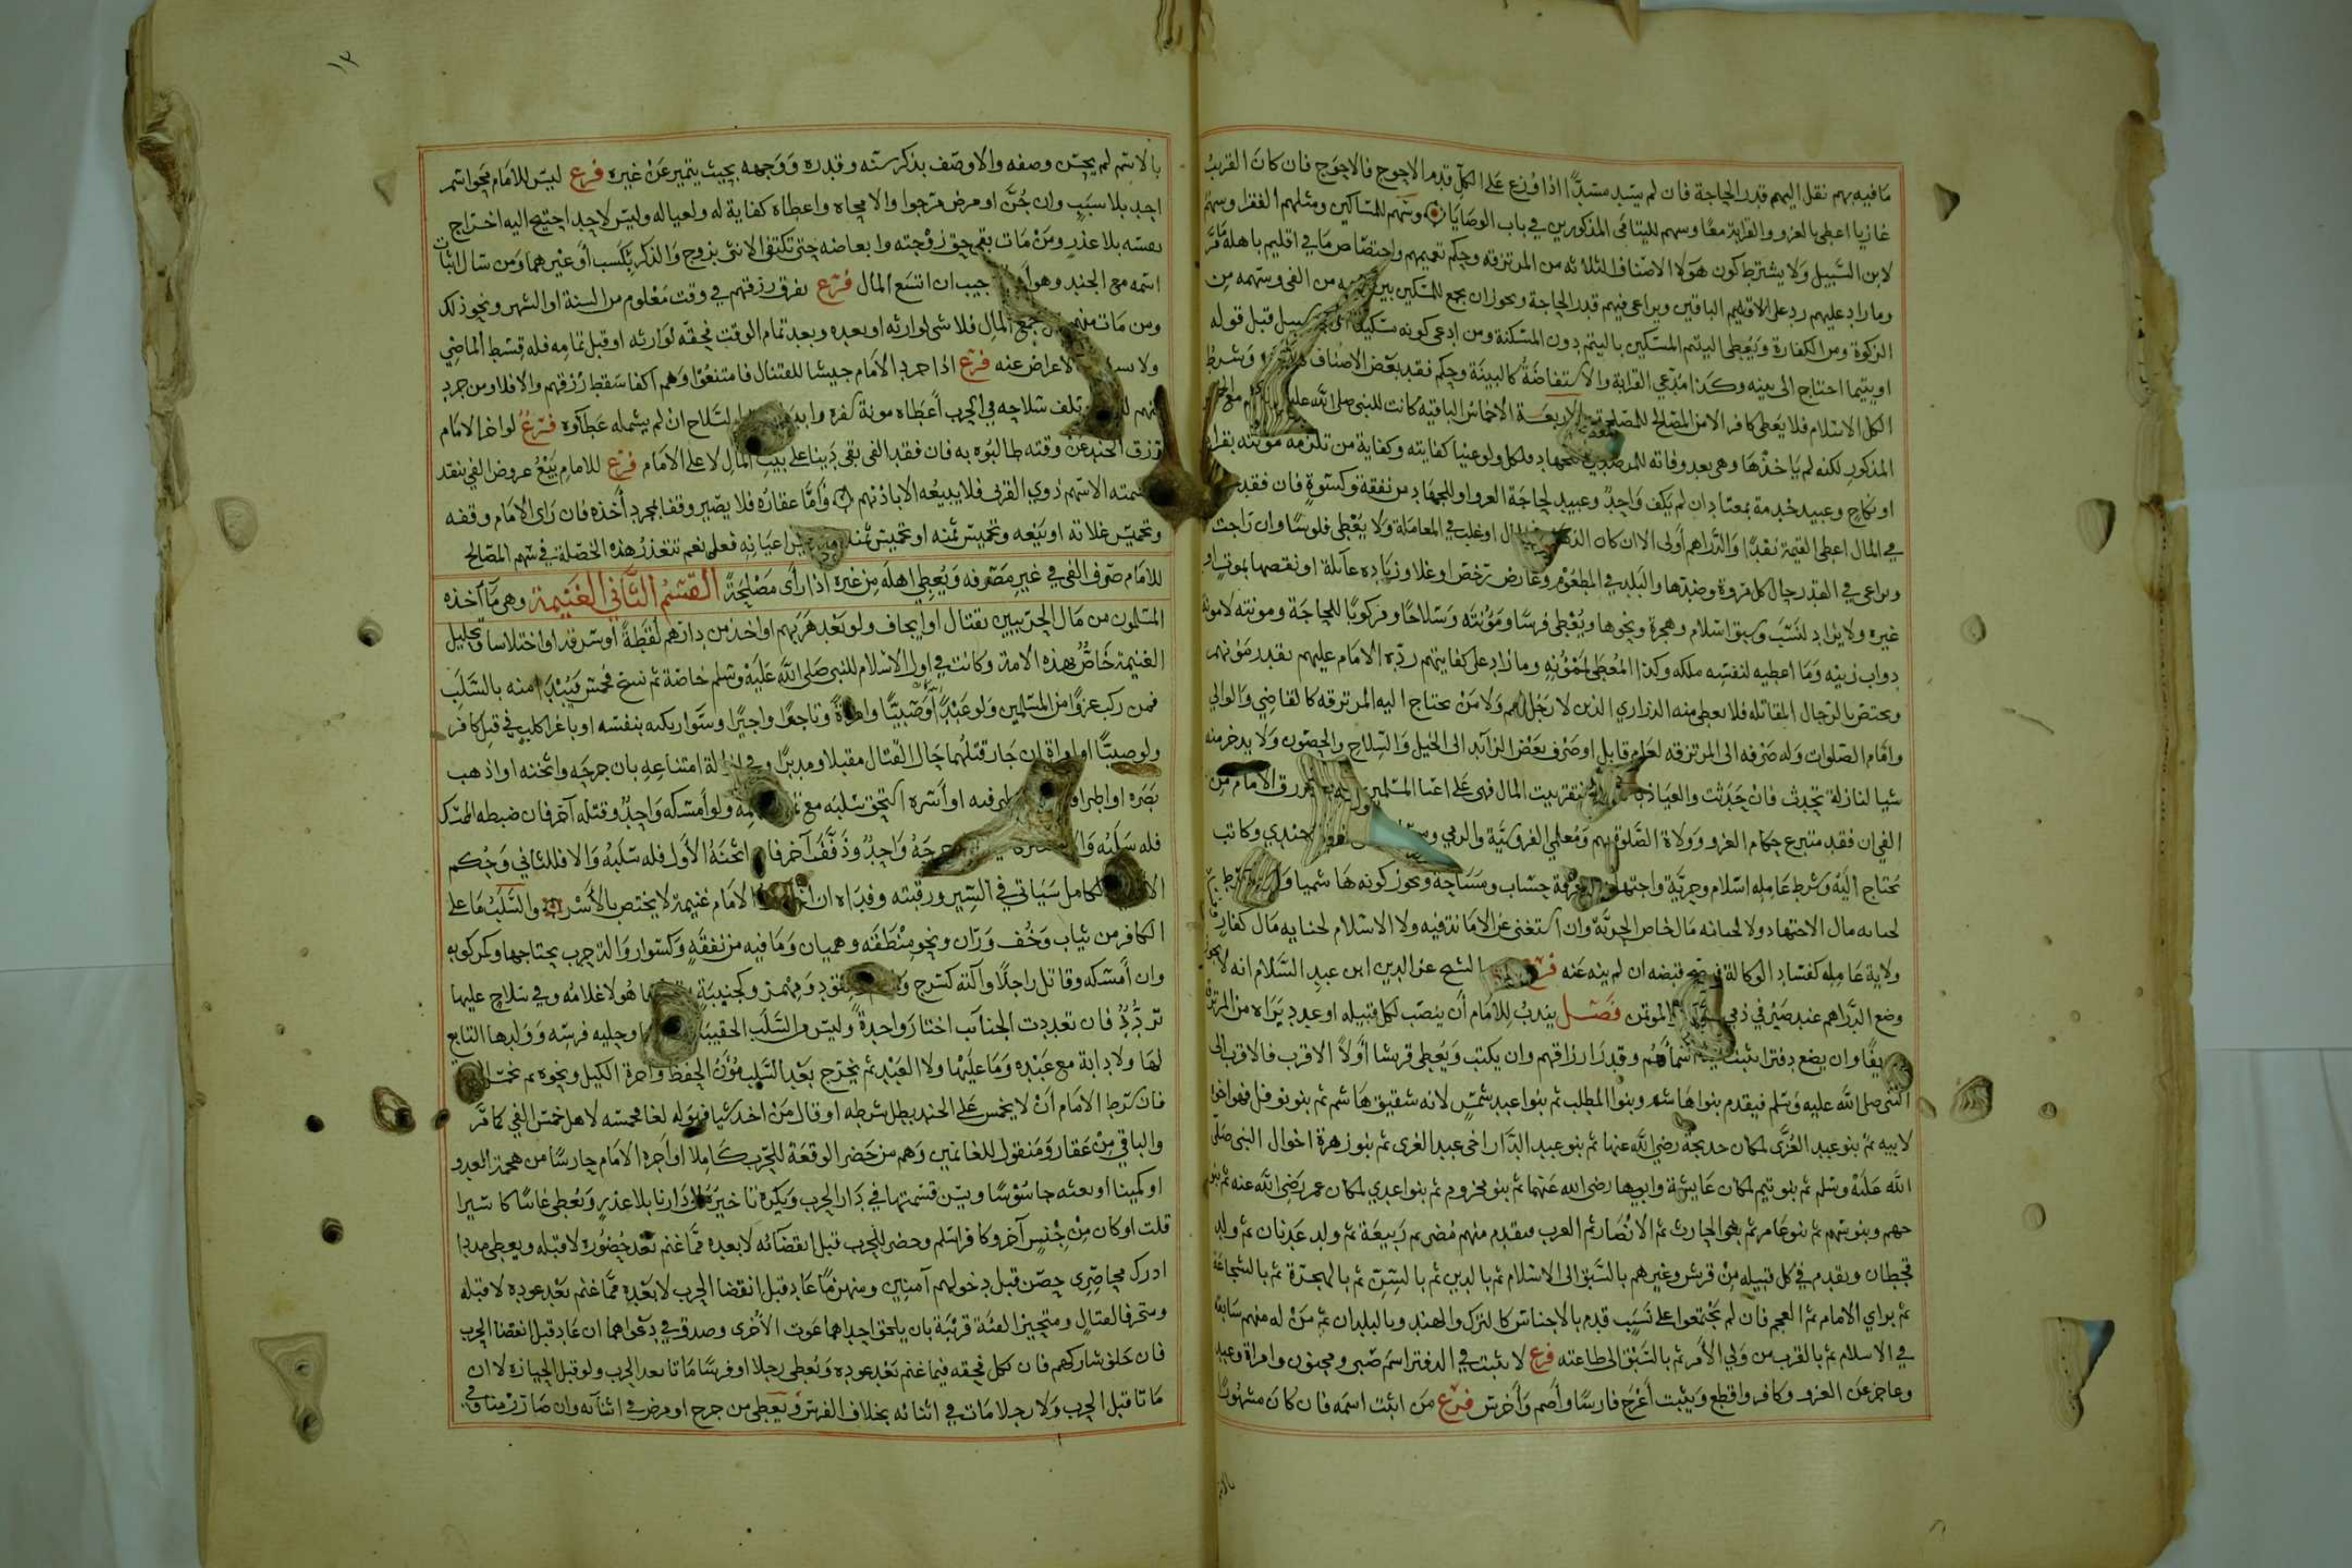 ما فيه بهم نقل اليهم قدر الحاجة فان لم يسد مسدا اذا وزع على الكل قدم الاحوج فالاحوج فان كان القريب
غازيا اعطي بالغزو والقرابة معا وسهم لليتامى المذكورين في باب الوصايا وسهم للمساكين ومثلهم الفقرا وسهم
لابن السبيل ولا يشترط كون هولا الاصناف الثلاثه من المرتزقه وحكم تعميمهم واختصاص ما في اقليم باهله مر
وما زاد عليهم رد على الاقليم الباقين ويراعى فيهم قدر الحاجة ويجوز ان يجمع للمسكين بين من الفي وسهمه من
الزكوة ومن الكفارة ويعطى اليتيم المسكين باليتم دون المسكنة ومن ادعى كونه مسكينا سبيل قبل قوله
او يتيما احتاج الى بينه وكذا مدعي القرابة والاستفاضة كالبينة وحكم فقد بعض الاصناف وشرط
الكل الاسلام فلا يعطى كافر الا من المصالح للمصلحة الاربعة الاخماس الباقيه كانت للنبي صلى الله عليه
المذكور لكنه لم ياخذها وهي بعد وفاته للمرصدين للجهاد فلكل ولو غنيا كفايته وكفاية من تلزمه مونته بقرابة
او نكاح وعبيد خدمة بمعتاد ان لم يكف واحد وعبيد لحاجة الغزو او للجهاد من نفقة وكسوة فان فقد
في المال اعطي القيمة نقدا والدراهم اولى الا ان كان الذهب اوغلب في المعاملة ولا يعطى فلوسا وان راجت
ويراعى في القدر حال كل مروة وضدها والبلد في المطعوم وعارض رخص او غلا وزياده عائلة او نقصها بموت او
غيره ولا يزاد لنسب وسبق اسلام وهجرة ونحوها ويعطى فرسا ومؤنته وسلاحا ومركوبا للحاجة ومونته لا مونة
دواب زينه وما اعطيه لنفسه ملكه وكذا المعطى لممؤنه وما زاد على كفايتهم رده الامام عليهم بقدر مؤنهم
ويختص بالرجال المقاتله فلا يعطى منه الذراري الذين لا رجل لهم ولا من يحتاج اليه المرتزقه كالقاضي والوالي
وامام الصلوات وله صرفه الى المرتزقه لعام قابل او صرف بعض الزائد الى الخيل والسلاح والحصون ولا يدخر منه
شيا لنازلة تحدث فان حدثت والعياذ بالله وافتقر بيت المال فهي على اغنيا المسلمين رزق الامام من
الفي ان فقد متبرع حكام الغزو وولاة الصلوة بهم ومعلمي الفروسية والرمي جندي وكاتب
يحتاج اليه وشرط عامله اسلام وحرية واجتهاد ومعرفة حساب ومساحة ويجوز كونه هاشميا
لجبايه مال الاجتهاد ولا لجبائه مال خاص الحرية وان استغنى عن الامانة فيه ولا الاسلام لجبايه مال كفار
ولاية عامله كفساد الوكالة في صح قبضه ان لم ينه عنه فرع الشيخ عز الدين ابن عبد السلام انه لا يجوز
وضع الدراهم عند صيرفي ذمي الموتمن فصل يندب للامام ان ينصب لكل قبيله او عدد يراه من المرتزقة
عريفا وان يضع دفترا يثبت فيه اسماهم وقدر ارزاقهم وان يكتب ويعطى قريشا اولا الاقرب فالاقرب الى
النبي صلى الله عليه وسلم فيقدم بنوا هاشم وبنوا المطلب ثم بنوا عبد شمس لانه شقيق هاشم ثم بنو نوفل فهو اخوا
لابيه ثم بنو عبد العزى لمكان خديجة رضي الله عنها ثم بنو عبد الدار اخي عبد العزى ثم بنو زهرة اخوال النبي صلى
الله عليه وسلم ثم بنو تيم لمكان عايشة وابيها رضي الله عنهما ثم بنو مخزوم ثم بنوا عدي لمكان عمر رضي الله عنه ثم بنو
جمح وبنو سهم ثم بنو عامر ثم بنو الحارث ثم الانصار ثم العرب فيقدم منهم مضر ثم ربيعة ثم ولد عدنان ثم ولد
قحطان ويقدم في كل قبيله من قريش وغيرهم بالسبق الى الاسلام ثم بالدين ثم بالسن ثم بالهجرة ثم بالشجاعة
ثم براي الامام ثم العجم فان لم يجتمعوا على نسب قدم بالاجناس كالترك والهند وبالبلدان ثم من له منهم سابقة
في الاسلام ثم بالقرب من ولي الامر ثم بالسبق الى طاعته فرع لا يثبت في الدفتر اسم صبي ومجنون وامراة وعبد
وعاجز عن الغزو وكافر واقطع ويثبت اعرج فارسا واصم واخرس فرع من اثبت اسمه فان كان مشهورا
١٣
بالاسم لم يحسن وصفه والا وصف بذكر سنه وقدره ووجهه بحيث يتميز عن غيره فرع ليس للامام محو اسم
احد بلا سبب وان جن او مرض مرجوا والا محاه واعطاه كفاية له ولعياله وليس لاحد احتيج اليه اخراج
نفسه بلا عذر ومن مات بقي حق زوجته وابعاضه حتى تكتفي الانثى بزوج والذكر بكسب او غيرهما ومن سال اثبات
اسمه مع الجند وهو اجيب ان اتسع المال فرع يفرق رزقهم في وقت معلوم من السنة او الشهر ونحو ذلك
ومن مات منهم جمع المال فلا شي لوارثه او بعده وبعد تمام الوقت فحقه لوارثه او قبل تمامه فله قسط الماضي
ولا الاعراض عنه فرع اذا جرد الامام جيشا للقتال فامتنعوا وهم اكفا سقط رزقهم والا فلا ومن جرد
منهم تلف سلاحه في الحرب اعطاه مونة سفره وابدله السلاح ان لم يشمله عطاوه فرع لو اخر الامام
رزق الجند عن وقته طالبوه به فان فقد الفي بقي دينا على بيت المال لا على الامام فرع للامام بيع عروض الفي بنقد
وقسمته الا سهم ذوي القربى فلا يبيعه الا باذنهم واما عقاره فلا يصير وقفا بمجرد اخذه فان راى الامام وقفه
وتخميس غلاته او بيعه وتخميس ثمنه او تخميس اعيانه فعل نعم تتعذر هذه الخصلة في سهم المصالح
للامام صرف الفي في غير مصرفه ويعطي اهله من غيره اذا راى مصلحة القسم الثاني الغنيمة وهي ما اخذه
المسلمون من مال الحربيين بقتال او ايجاف ولو بعد هربهم او اخذ من دارهم لقطة او سرقه او اختلاسا وتحليل
الغنيمة خاص بهذه الامة وكانت في اول الاسلام للنبي صلى الله عليه وسلم خاصة ثم نسخ فخمس فيبدا منه بالسلب
فمن ركب غزوا من المسلمين ولو عبدا او صبيا وامراة وتاجعا واجيرا وسوا ركبه بنفسه او باغرا كلب في قتل كافر
ولو صبيا او امراة ان جاز قتلهما حال القتال مقبلا ومدبرا وفي ازالة امتناعه بان جرحه واثخنه او اذهب
بصره او اطراف طرفيه او اسره استحق سلبه مع ولو امسكه واحد وقتله آخر فان ضبطه الممسك
فله سلبه والا جرحه واحد وذفف آخر فان اثخنه الاول فله سلبه والا فللثاني وحكم
الكامل سياتي في السير ورقبته وفداه ان اختار الامام غنيمة لا يختص بالاسر والسلب ما على
الكافر من ثياب وخف وران ونحو منطقه وهميان وما فيه من نفقه وكسوار والة حرب يحتاجها ومركوب
وان امسكه وقاتل راجلا وآلته كسرج ومقود ومهمز وكجنيبة هو لا غلامه وفي سلاح عليها
تردد فان تعددت الجنائب اختار واحدة وليس والسلب الحقيبة وحليه فرسه وولدها التابع
لها ولا دابة مع عبده وما عليها ولا العبد ثم يخرج بعد السلب مؤن الحفظ واجرة الكيل ونحوه ثم تخمس
فان شرط الامام ان لا يخمس على الجند بطل شرطه او قال من اخذ شيا فهو له لغا فخمسه لاهل خمس الفي كما مر
والباقي من عقار ومنقول للغانمين وهم من حضر الوقعة للحرب كاملا او اجره الامام حارسا من هجمة العدو
او كمينا او بعثه جاسوسا ويسن قسمتها في دار الحرب ويكره تاخيره الى دارنا بلا عذر ويعطى غايبا كاسيرا
قلت او كان من جنس آخر وكافر اسلم وحضر للحرب قبل انقضائه لا بعده مما غنم بعد حضوره لا قبله ويعطى مددا
ادرك محاصري حصن قبل دخولهم آمنين ومنهزما عاد قبل انقضا الحرب لا بعده مما غنم بعد عوده لا قبله
ومتحرفا لقتال ومتحيزا لفئة قريبة بان يلحق احداهما غوث الاخرى وصدق في دعواهما ان عاد قبل انقضا الحرب
فان حلف شاركهم فان نكل فحقه فيما غنم بعد عوده ويعطى رجلا او فرسا ماتا بعد الحرب ولو قبل الحيازه لا ان
ماتا قبل الحرب ولا رجلا مات في اثنائه بخلاف الفرس ويعطى من جرح او مرض في اثنائه وان صار زمنا وفي